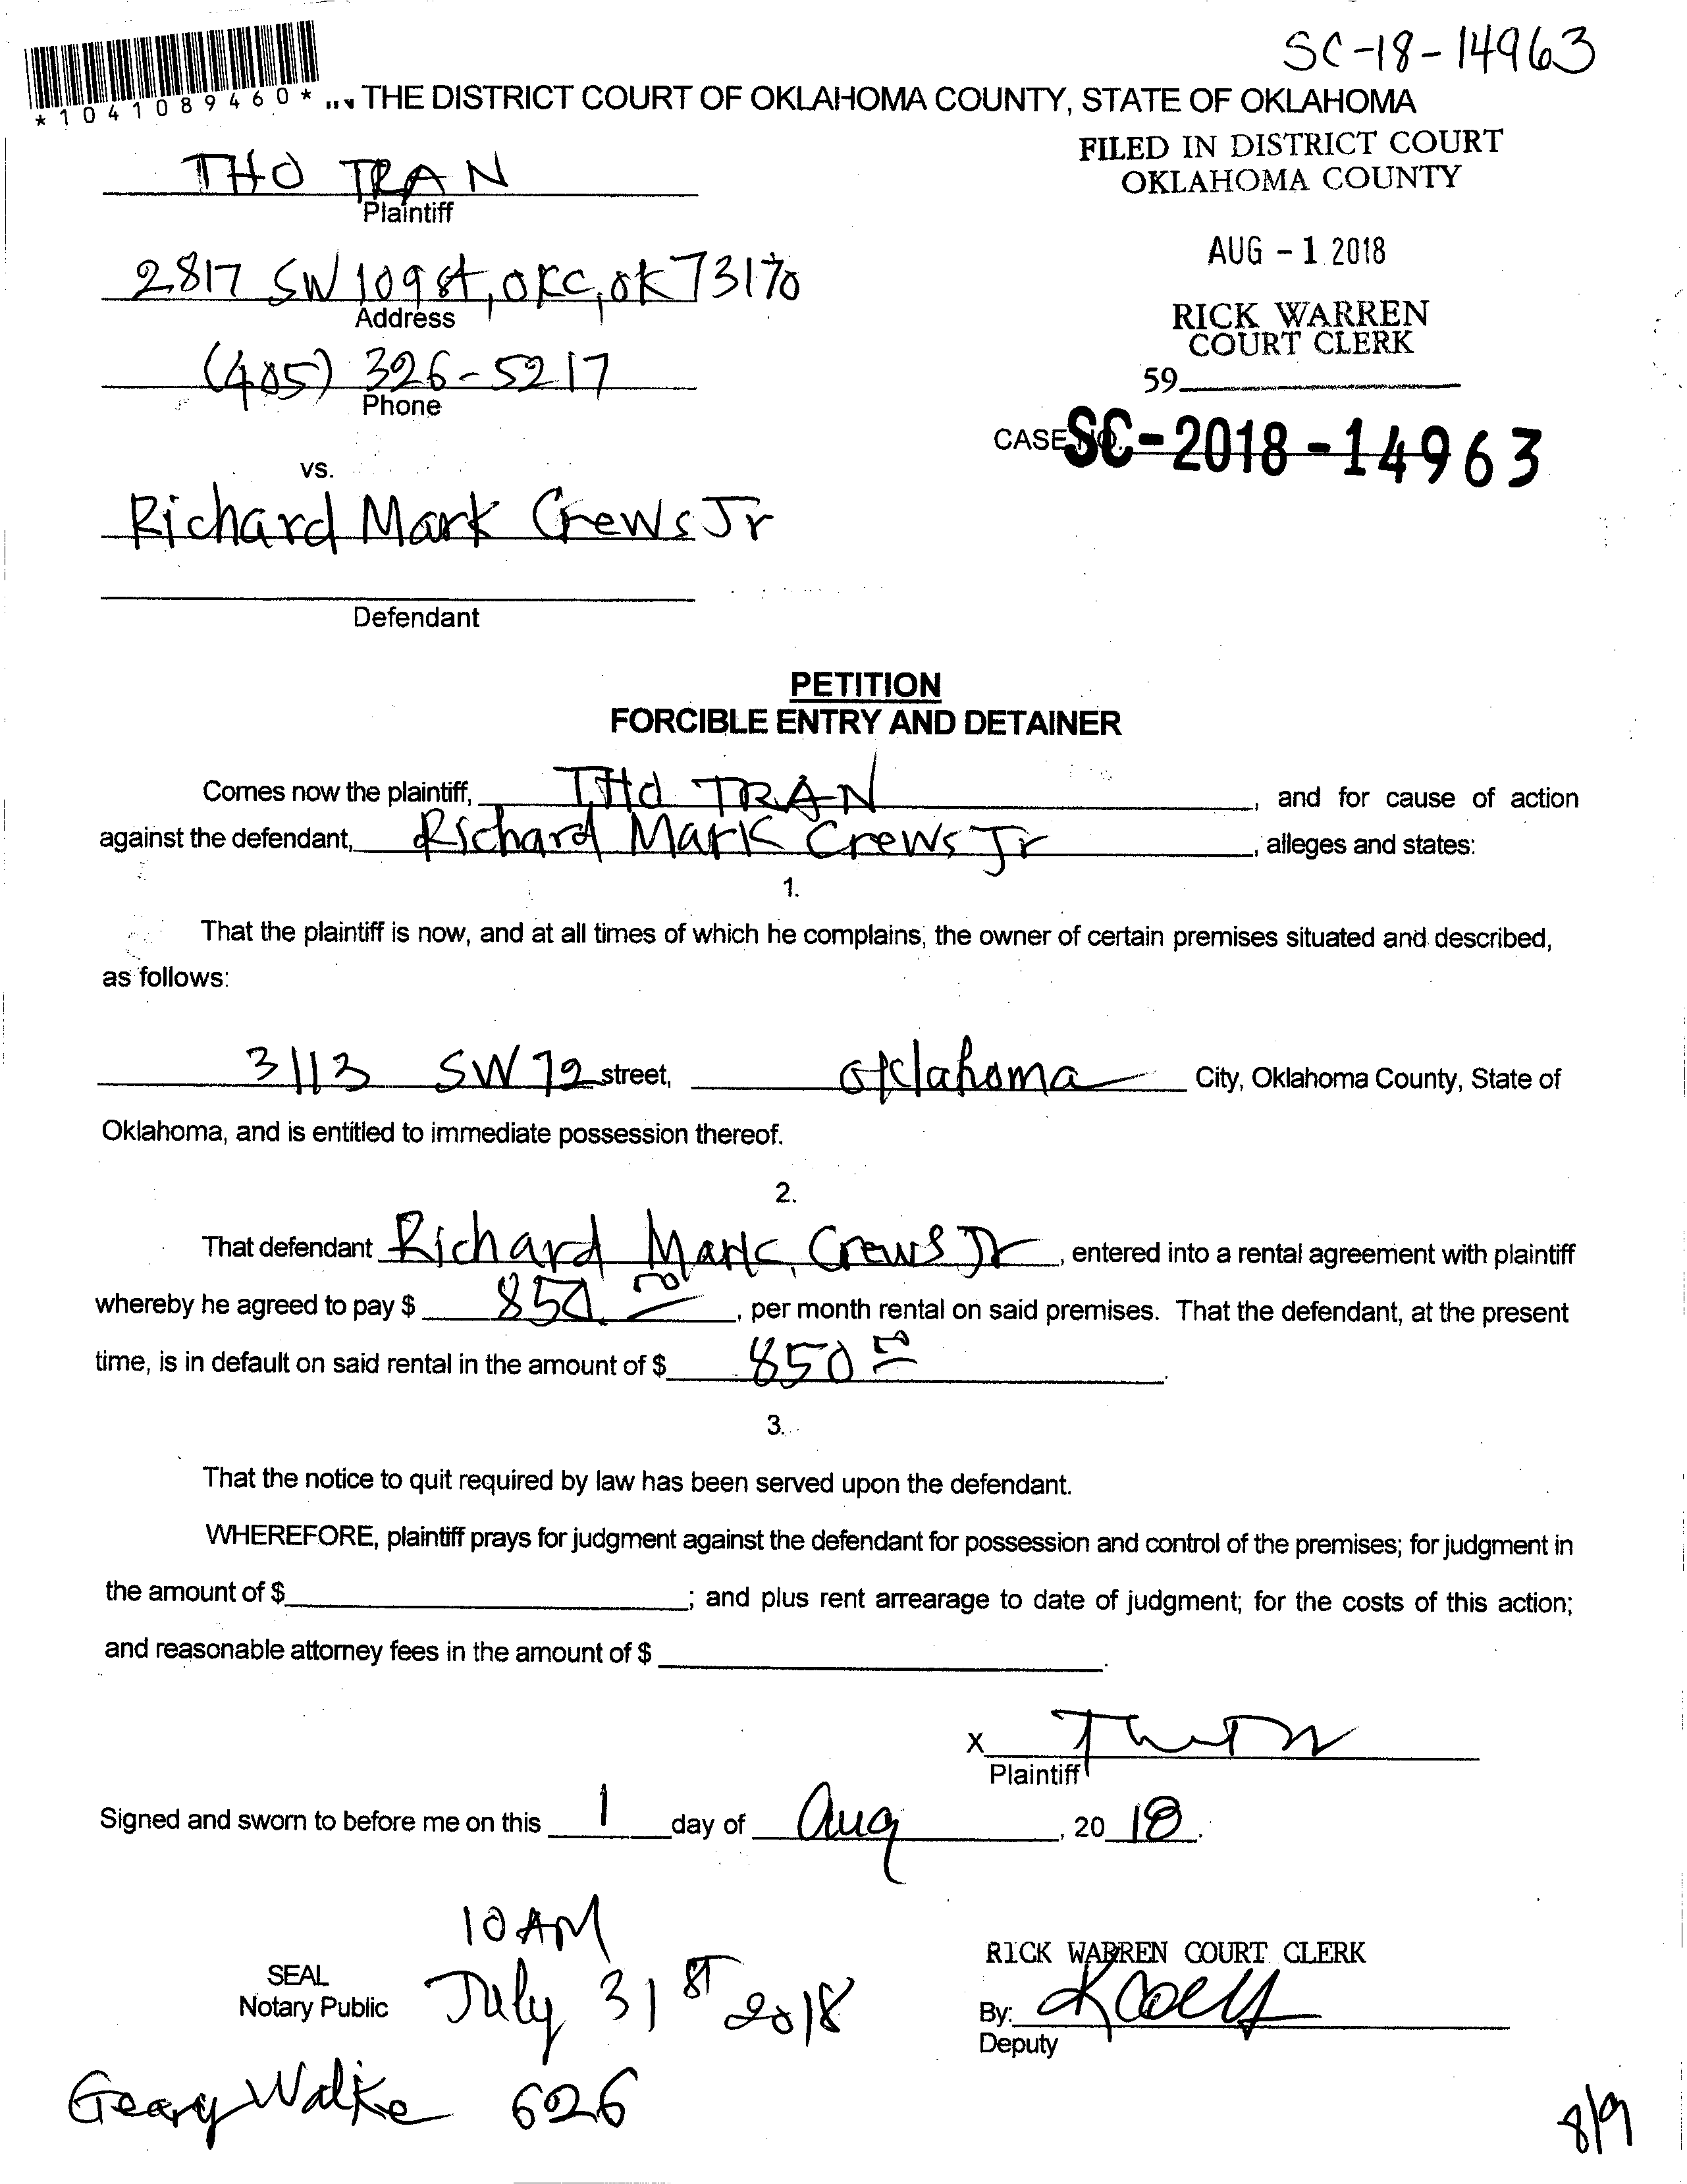 SC-18-14963
*1041089460*
THE DISTRICT COURT OF OKLAHOMA COUNTY, STATE OF OKLAHOMA
FILED IN DISTRICT COURT
OKLAHOMA COUNTY
THO TRAN
Plaintiff
AUG - 1 2018
2817 SW 109 st, OKC, OK 73170
Address
RICK WARREN
COURT CLERK
(405) 326-5217
Phone
59
CASE NO. SC-2018-14963
vs.
Richard Mark Crews Jr
Defendant
PETITION
FORCIBLE ENTRY AND DETAINER
Comes now the plaintiff, THO TRAN, and for cause of action
against the defendant, Richard Mark Crews Jr, alleges and states:
1.
That the plaintiff is now, and at all times of which he complains, the owner of certain premises situated and described,
as follows:
3113 SW 72 street, Oklahoma City, Oklahoma County, State of
Oklahoma, and is entitled to immediate possession thereof.
2.
That defendant Richard Mark Crews Jr, entered into a rental agreement with plaintiff
whereby he agreed to pay $ 850.00, per month rental on said premises. That the defendant, at the present
time, is in default on said rental in the amount of $ 850 00.
3.
That the notice to quit required by law has been served upon the defendant.
WHEREFORE, plaintiff prays for judgment against the defendant for possession and control of the premises; for judgment in
the amount of $ ; and plus rent arrearage to date of judgment; for the costs of this action;
and reasonable attorney fees in the amount of $ .
X
Plaintiff
Signed and sworn to before me on this 1 day of Aug, 2018.
10 AM
RICK WARREN COURT CLERK
SEAL
Notary Public
July 31 ST 2018
By:
Deputy
Geary Walke 626
8/9